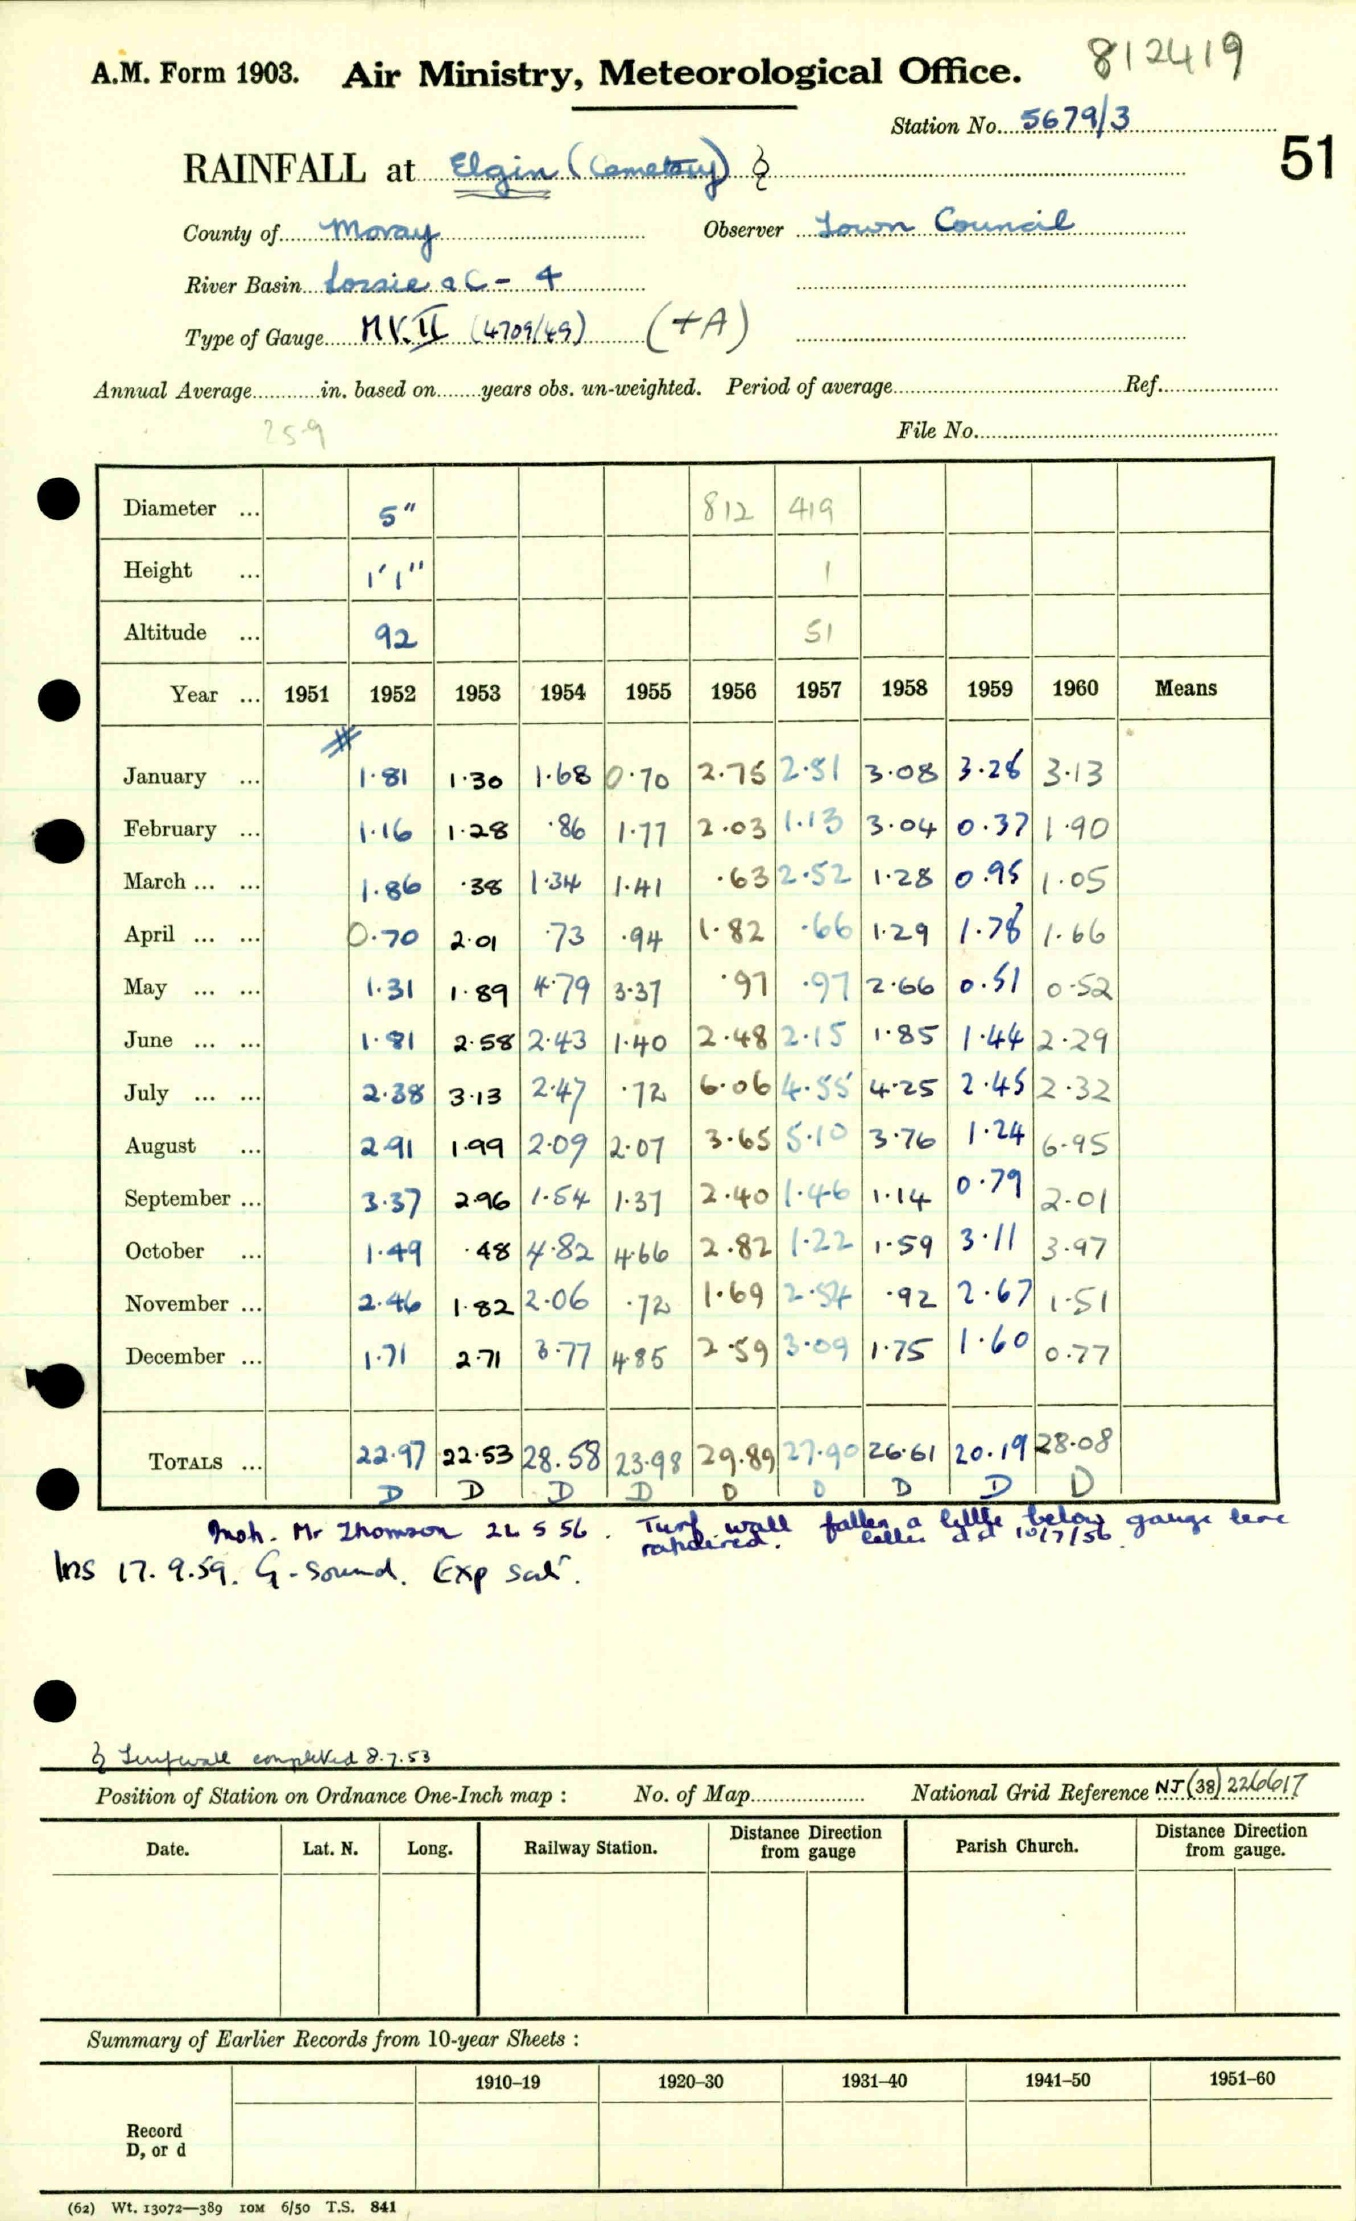 812419
A.M. Form 1903. Air Ministry, Meteorological Office.
Station No. 5679/3
51
RAINFALL at Elgin (Cemetery)
County of Moray Observer Town Council
River Basin Lossie & C - 4
Type of Gauge MK.II (4709/49) (+A)
Annual Average in. based on years obs. un-weighted. Period of average Ref.
259
File No.
Diameter ... 5" 812 419
Height ... 1'1" 1
Altitude ... 92 51
Year ... 1951 1952 1953 1954 1955 1956 1957 1958 1959 1960 Means
#
January ... 1.81 1.30 1.68 0.70 2.75 2.51 3.08 3.28 3.13
February ... 1.16 1.28 .86 1.77 2.03 1.13 3.04 0.37 1.90
March ... ... 1.86 .38 1.34 1.41 .63 2.52 1.28 0.95 1.05
April ... ... 0.70 2.01 .73 .94 1.82 .66 1.29 1.78 1.66
May ... ... 1.31 1.89 4.79 3.37 .97 .97 2.66 0.51 0.52
June ... ... 1.81 2.58 2.43 1.40 2.48 2.15 1.85 1.44 2.29
July ... ... 2.38 3.13 2.47 .72 6.06 4.55 4.25 2.45 2.32
August ... 2.91 1.99 2.09 2.07 3.65 5.10 3.76 1.24 6.95
September ... 3.37 2.96 1.54 1.37 2.40 1.46 1.14 0.79 2.01
October ... 1.49 .48 4.82 4.66 2.82 1.22 1.59 3.11 3.97
November ... 2.46 1.82 2.06 .72 1.69 2.54 .92 2.67 1.51
December ... 1.71 2.71 3.77 4.85 2.59 3.09 1.75 1.60 0.77
TOTALS ... 22.97 22.53 28.58 23.98 29.89 27.90 26.61 20.19 28.08
D D D D D D D D D
Mr Thomson 22 5 56. Turf wall fallen a little below gauge
10/7/56.
Ins 17.9.59. G-sound. Exp sat.
Turfwall completed 8.7.53
Position of Station on Ordnance One-Inch map : No. of Map National Grid Reference NJ (38) 226617
Date. Lat. N. Long. Railway Station. Distance Direction from gauge Parish Church. Distance Direction from gauge.
Summary of Earlier Records from 10-year Sheets :
1910–19 1920–30 1931–40 1941–50 1951–60
Record
D, or d
(62) Wt. 13072—389 10M 6/50 T.S. 841